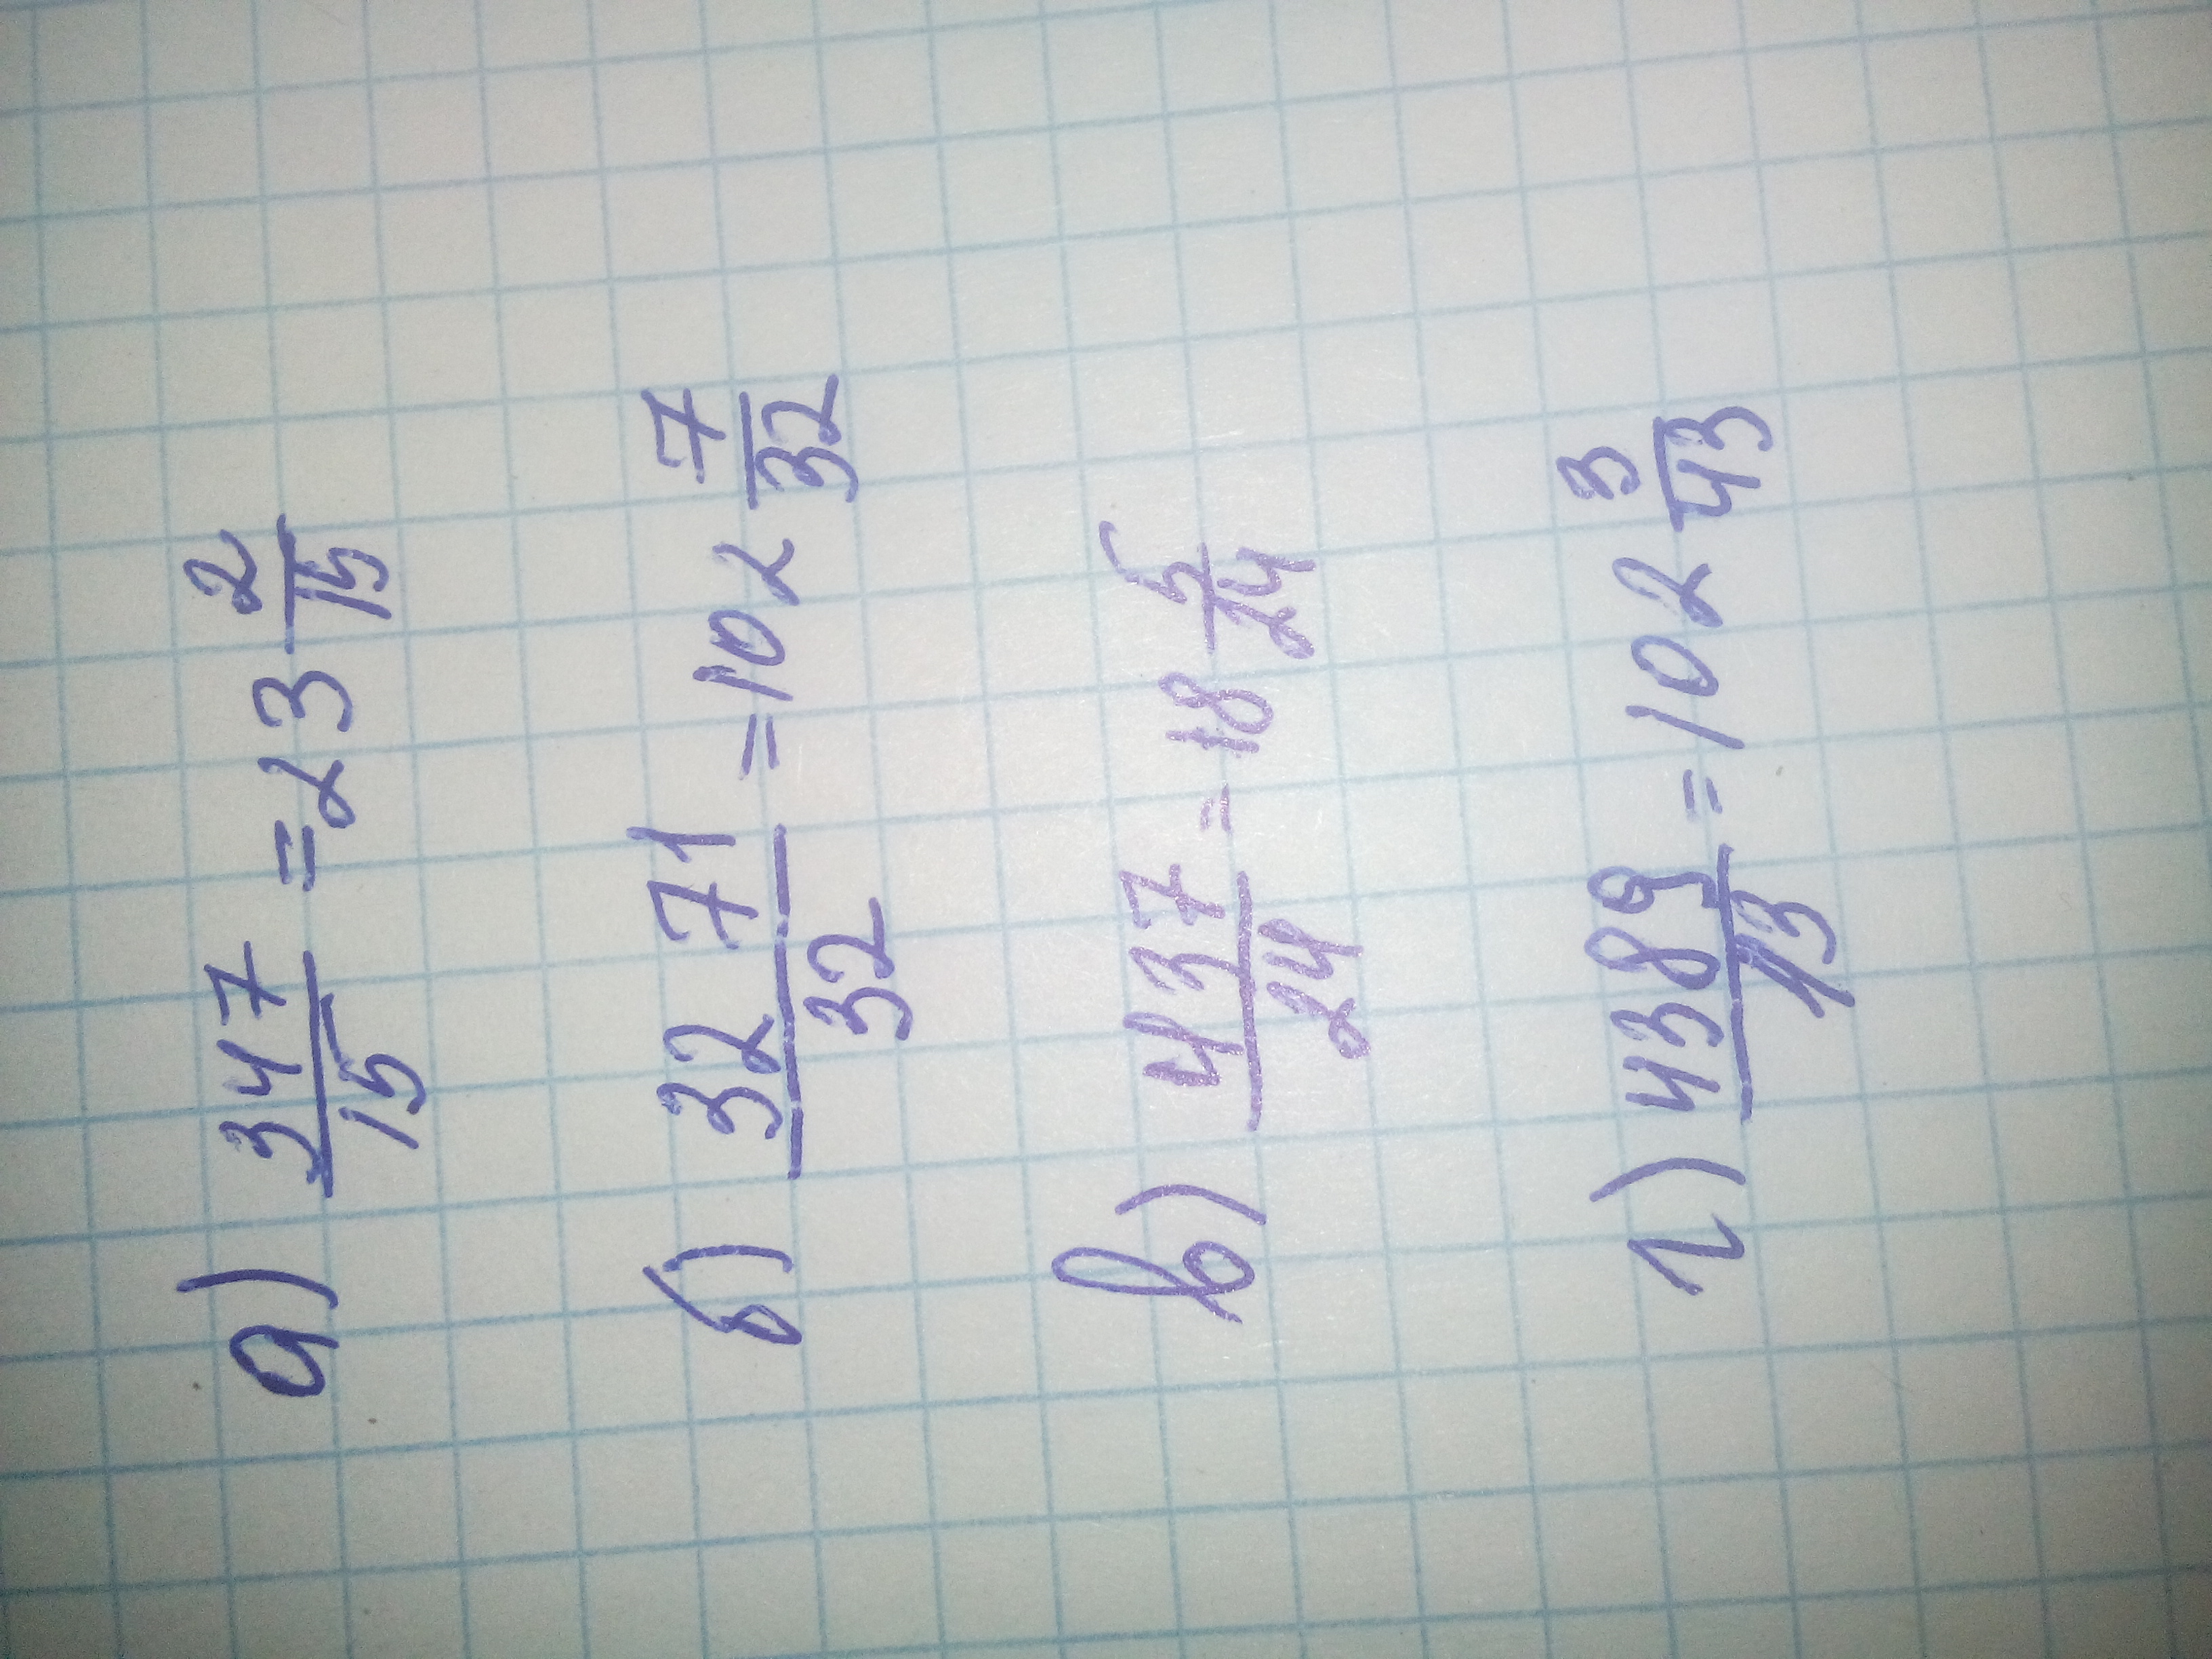 а) 347/15 = 23 2/15
б) 3271/32 = 102 7/32
в) 437/24 = 18 5/24
г) 4389/43 = 102 3/43